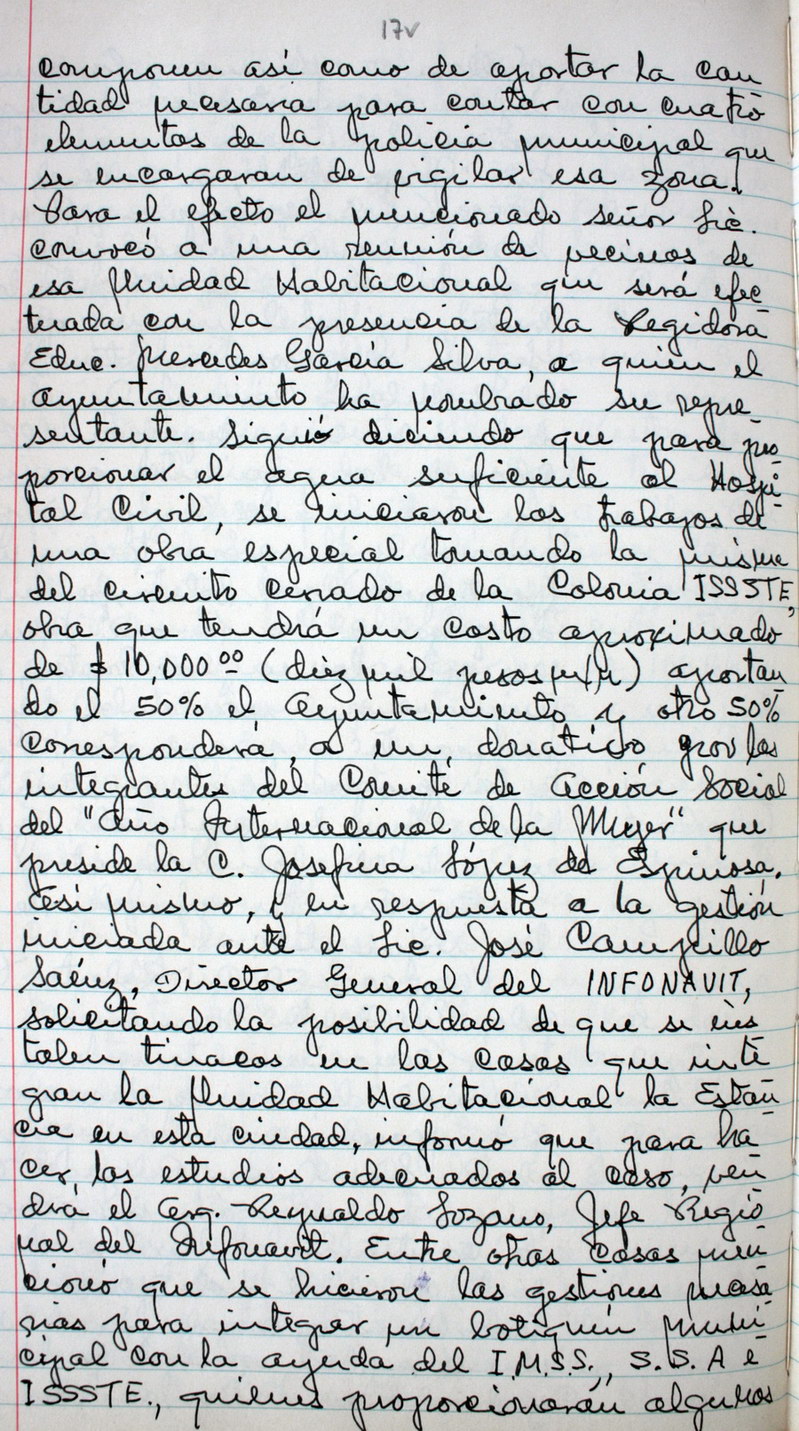 17v
componen así como de aportar la can
tidad necesaria para contar con cuatro
elementos de la policia municipal que
se encargaran de vigilar esa zona.
Para el efecto el mencionado señor Lic.
convocó a una reunión de vecinos de
esa Unidad Habitacional que será efec
tuada con la presencia de la Regidora
Educ. Mercedes García Silva, a quien el
ayuntamiento ha nombrado su repre
sentante. Siguió diciendo que para pro
porcionar el agua suficiente al Hospi
tal Civil, se iniciaron los trabajos de
una obra especial tomando la misma
del circuito cerrado de la Colonia ISSSTE,
obra que tendrá un costo aproximado
de $ 10,000.00 (diez mil pesos m/n) aportan
do el 50% el Ayuntamiento y otro 50%
corresponderá a un donativo por las
integrantes del Comité de Acción Social
del "Año Internacional de la Mujer" que
preside la C. Josefina López de Espinosa.
Así mismo, y en respuesta a la gestión
iniciada ante el Lic. José Campillo
Saénz, Director General del INFONAVIT,
solicitando la posibilidad de que se ins
talen tinacos en las casas que inte
gran la Unidad Habitacional la Estan
cia en esta ciudad, informó que para ha
cer los estudios adecuados al caso, ven
drá el Arq. Reynaldo Lozano, Jefe Regio
nal del Infonavit. Entre otras cosas men
cionó que se hicieron las gestiones necesa
rias para integrar un botiquín muni
cipal con la ayuda del I.M.S.S., S.S.A e
ISSSTE., quienes proporcionarán algunos